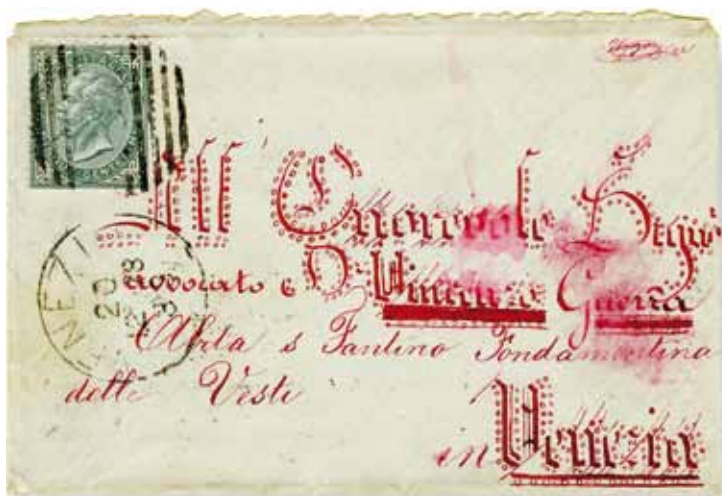 All' Onorevole Sigr
avvocato e Dr Vincenzo Guerra
Abita S Fantino Fondamentina
delle Veste
in Venezia
20